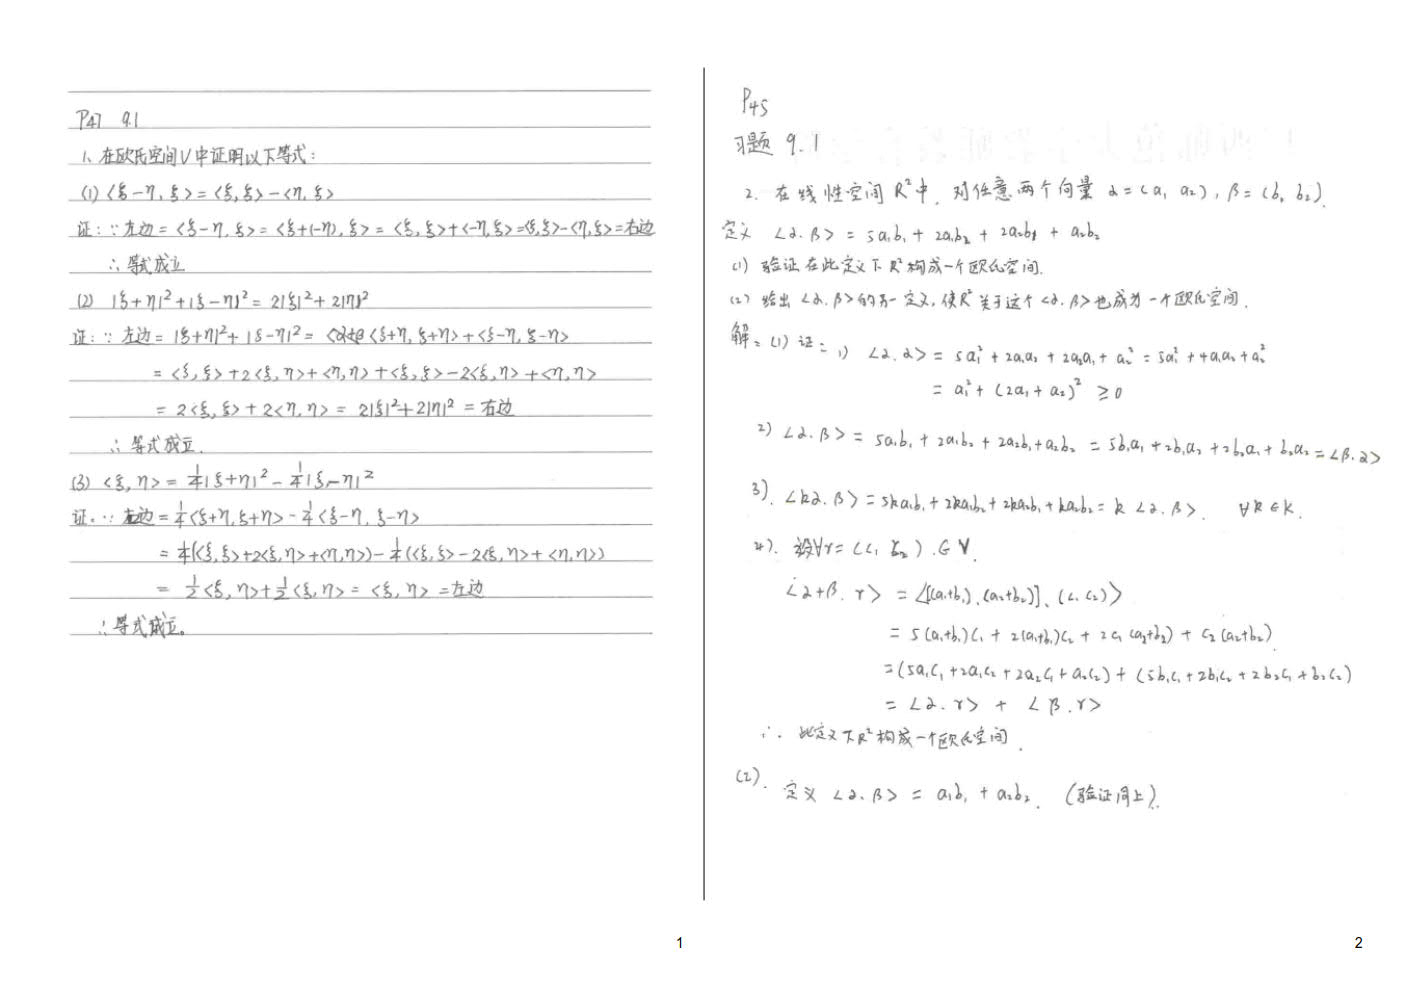 P47 9.1
1、在欧氏空间V中证明以下等式：
(1) <ξ-η, ξ> = <ξ, ξ> - <η, ξ>
证：∵ 左边 = <ξ-η, ξ> = <ξ+(-η), ξ> = <ξ, ξ> + <-η, ξ> = <ξ, ξ> - <η, ξ> = 右边
∴ 等式成立
(2) |ξ+η|² + |ξ-η|² = 2|ξ|² + 2|η|²
证：∵ 左边 = |ξ+η|² + |ξ-η|² = <ξ+η, ξ+η> + <ξ-η, ξ-η>
= <ξ, ξ> + 2<ξ, η> + <η, η> + <ξ, ξ> - 2<ξ, η> + <η, η>
= 2<ξ, ξ> + 2<η, η> = 2|ξ|² + 2|η|² = 右边
∴ 等式成立.
(3) <ξ, η> = 1/4|ξ+η|² - 1/4|ξ-η|²
证。∵ 右边 = 1/4<ξ+η, ξ+η> - 1/4<ξ-η, ξ-η>
= 1/4(<ξ, ξ> + 2<ξ, η> + <η, η>) - 1/4(<ξ, ξ> - 2<ξ, η> + <η, η>)
= 1/2<ξ, η> + 1/2<ξ, η> = <ξ, η> = 左边
∴ 等式成立。
1
P45
习题 9.1
2. 在线性空间 R² 中, 对任意两个向量 α = (a₁ a₂), β = (b₁ b₂).
定义 <α.β> = 5a₁b₁ + 2a₁b₂ + 2a₂b₁ + a₂b₂
(1) 验证在此定义下 R² 构成一个欧氏空间.
(2) 给出 <α.β> 的另一定义, 使 R² 关于这个 <α.β> 也成为一个欧氏空间.
解：(1) 证：1) <α.α> = 5a₁² + 2a₁a₂ + 2a₂a₁ + a₂² = 5a₁² + 4a₁a₂ + a₂²
= a₁² + (2a₁ + a₂)² ≥ 0
2) <α.β> = 5a₁b₁ + 2a₁b₂ + 2a₂b₁ + a₂b₂ = 5b₁a₁ + 2b₁a₂ + 2b₂a₁ + b₂a₂ = <β.α>
3). <kα.β> = 5ka₁b₁ + 2ka₁b₂ + 2ka₂b₁ + ka₂b₂ = k <α.β>. ∀k∈K.
4). 设∀r = (c₁ c₂). ∈ V.
<α+β. r> = <[(a₁+b₁), (a₂+b₂)], (c₁ c₂)>
= 5(a₁+b₁)c₁ + 2(a₁+b₁)c₂ + 2c₁(a₂+b₂) + c₂(a₂+b₂)
= (5a₁c₁ + 2a₁c₂ + 2a₂c₁ + a₂c₂) + (5b₁c₁ + 2b₁c₂ + 2b₂c₁ + b₂c₂)
= <α.r> + <β.r>
∴ 此定义下R²构成一个欧氏空间.
(2). 定义 <α.β> = a₁b₁ + a₂b₂. (验证同上).
2